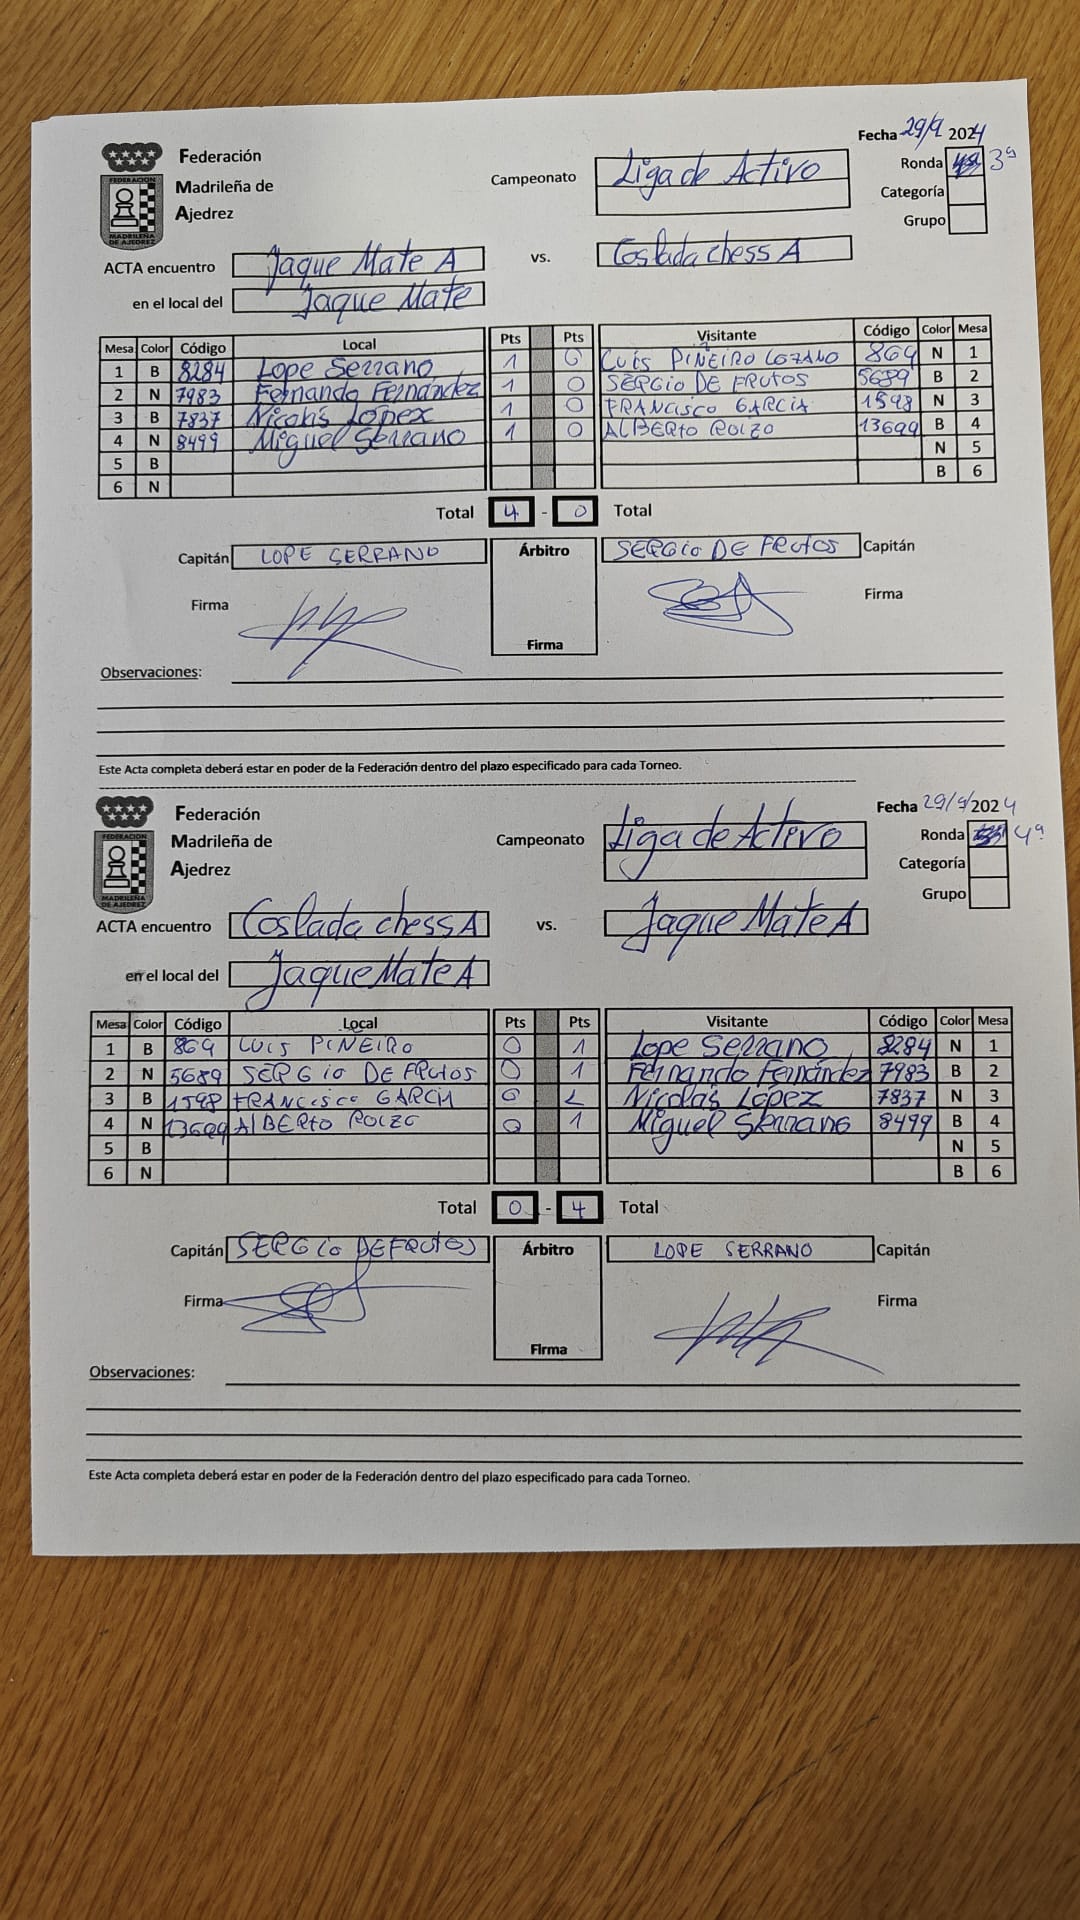 Federación
Madrileña de
Ajedrez
FEDERACION
MADRILEÑA
DE AJEDREZ
Campeonato Liga de Activo
Fecha 29/9 2024
Ronda 3ª
Categoría
Grupo
ACTA encuentro Jaque Mate A vs. Coslada chess A
en el local del Jaque Mate
Mesa Color Código Local Pts Pts Visitante Código Color Mesa
1 B 8284 Lope Serrano 1 0 LUIS PIÑEIRO LOZANO 869 N 1
2 N 7983 Fernando Fernández 1 0 SERGIO DE FRUTOS 5689 B 2
3 B 7837 Nicolás López 1 0 FRANCISCO GARCIA 1598 N 3
4 N 8499 Miguel Serrano 1 0 ALBERTO 13699 B 4
5 B N 5
6 N B 6
Total 4 - 0 Total
Capitán LOPE SERRANO Árbitro SERGIO DE FRUTOS Capitán
Firma Firma
Firma
Observaciones:
Este Acta completa deberá estar en poder de la Federación dentro del plazo especificado para cada Torneo.
Federación
Madrileña de
Ajedrez
FEDERACION
MADRILEÑA
DE AJEDREZ
Campeonato Liga de Activo
Fecha 29/9/2024
Ronda 4ª
Categoría
Grupo
ACTA encuentro Coslada chess A vs. Jaque Mate A
en el local del Jaque Mate A
Mesa Color Código Local Pts Pts Visitante Código Color Mesa
1 B 869 LUIS PIÑEIRO 0 1 Lope Serrano 8284 N 1
2 N 5689 SERGIO DE FRUTOS 0 1 Fernando Fernández 7983 B 2
3 B 1598 FRANCISCO GARCIA 0 1 Nicolás López 7837 N 3
4 N 13699 AlBERTO 0 1 Miguel Serrano 8499 B 4
5 B N 5
6 N B 6
Total 0 - 4 Total
Capitán SERGIO DE FRUTOS Árbitro LOPE SERRANO Capitán
Firma Firma
Firma
Observaciones:
Este Acta completa deberá estar en poder de la Federación dentro del plazo especificado para cada Torneo.